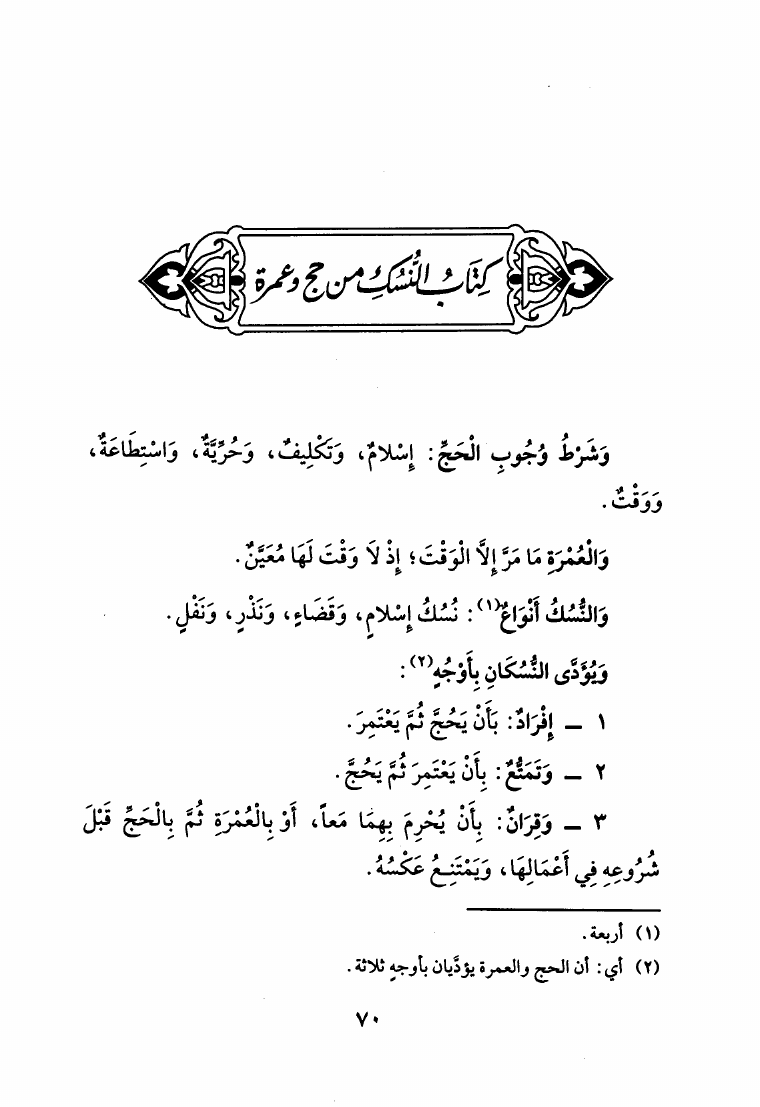 كِتَابُ النُّسُكِ مِن حج وعمرة
وَشَرْطُ وُجُوبِ الْحَجِّ: إِسْلامٌ، وَتَكْلِيفٌ، وَحُرِّيَّةٌ، وَاسْتِطَاعَةٌ،
وَوَقْتٌ.
وَالْعُمْرَةِ مَا مَرَّ إِلاَّ الْوَقْتَ؛ إِذْ لاَ وَقْتَ لَهَا مُعَيَّنٌ.
وَالنُّسُكُ أَنْوَاعٌ(١): نُسُكُ إِسْلامٍ، وَقَضَاءٍ، وَنَذْرٍ، وَنَفْلٍ.
وَيُؤَدَّى النُّسُكَانِ بِأَوْجُهٍ(٢):
١ – إِفْرَادٌ: بَأَنْ يَحُجَّ ثُمَّ يَعْتَمِرَ.
٢ – وَتَمَتُّعٌ: بِأَنْ يَعْتَمِرَ ثُمَّ يَحُجَّ.
٣ – وَقِرَانٌ: بِأَنْ يُحْرِمَ بِهِمَا مَعاً، أَوْ بِالْعُمْرَةِ ثُمَّ بِالْحَجِّ قَبْلَ
شُرُوعِهِ فِي أَعْمَالِهَا، وَيَمْتَنِعُ عَكْسُهُ.
(١) أربعة.
(٢) أي: أن الحج والعمرة يؤدَّيان بأوجهٍ ثلاثة.
٧٠